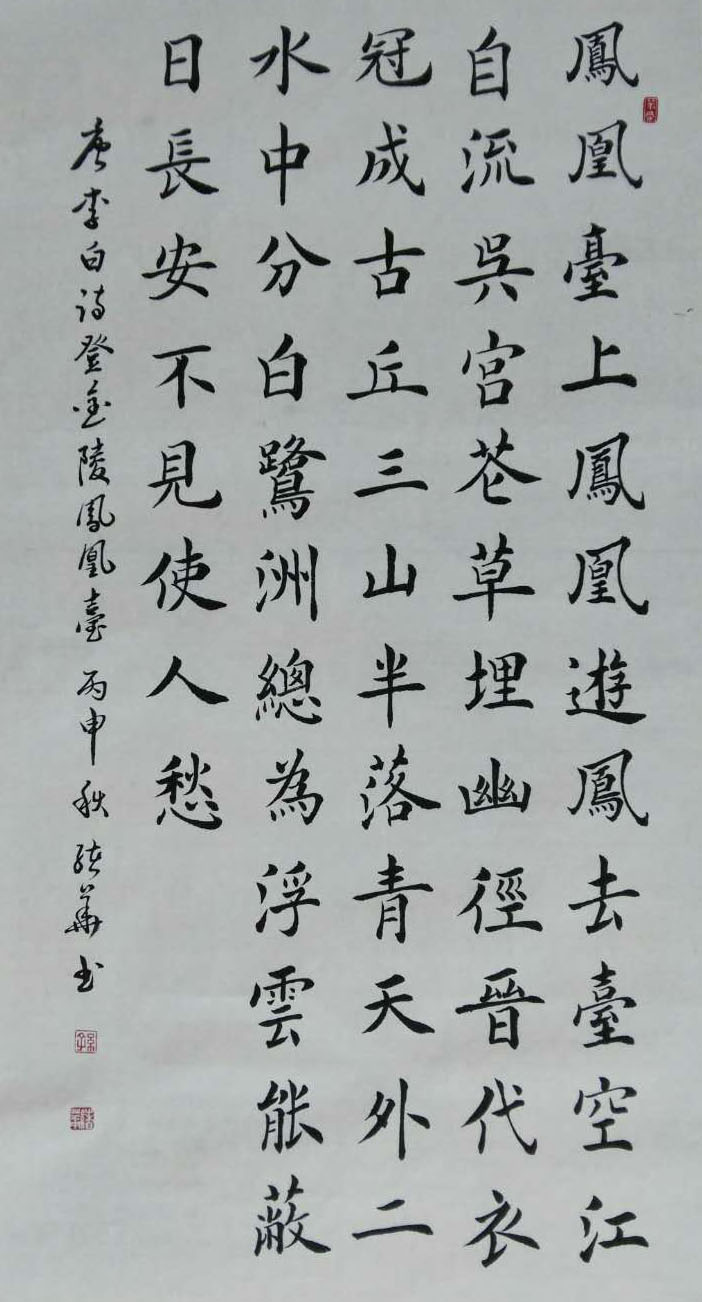 鳳凰臺上鳳凰遊鳳去臺空江
自流吳宮花草埋幽徑晉代衣
冠成古丘三山半落青天外二
水中分白鷺洲總為浮雲能蔽
日長安不見使人愁
唐李白詩登金陵鳳凰臺丙申秋華書